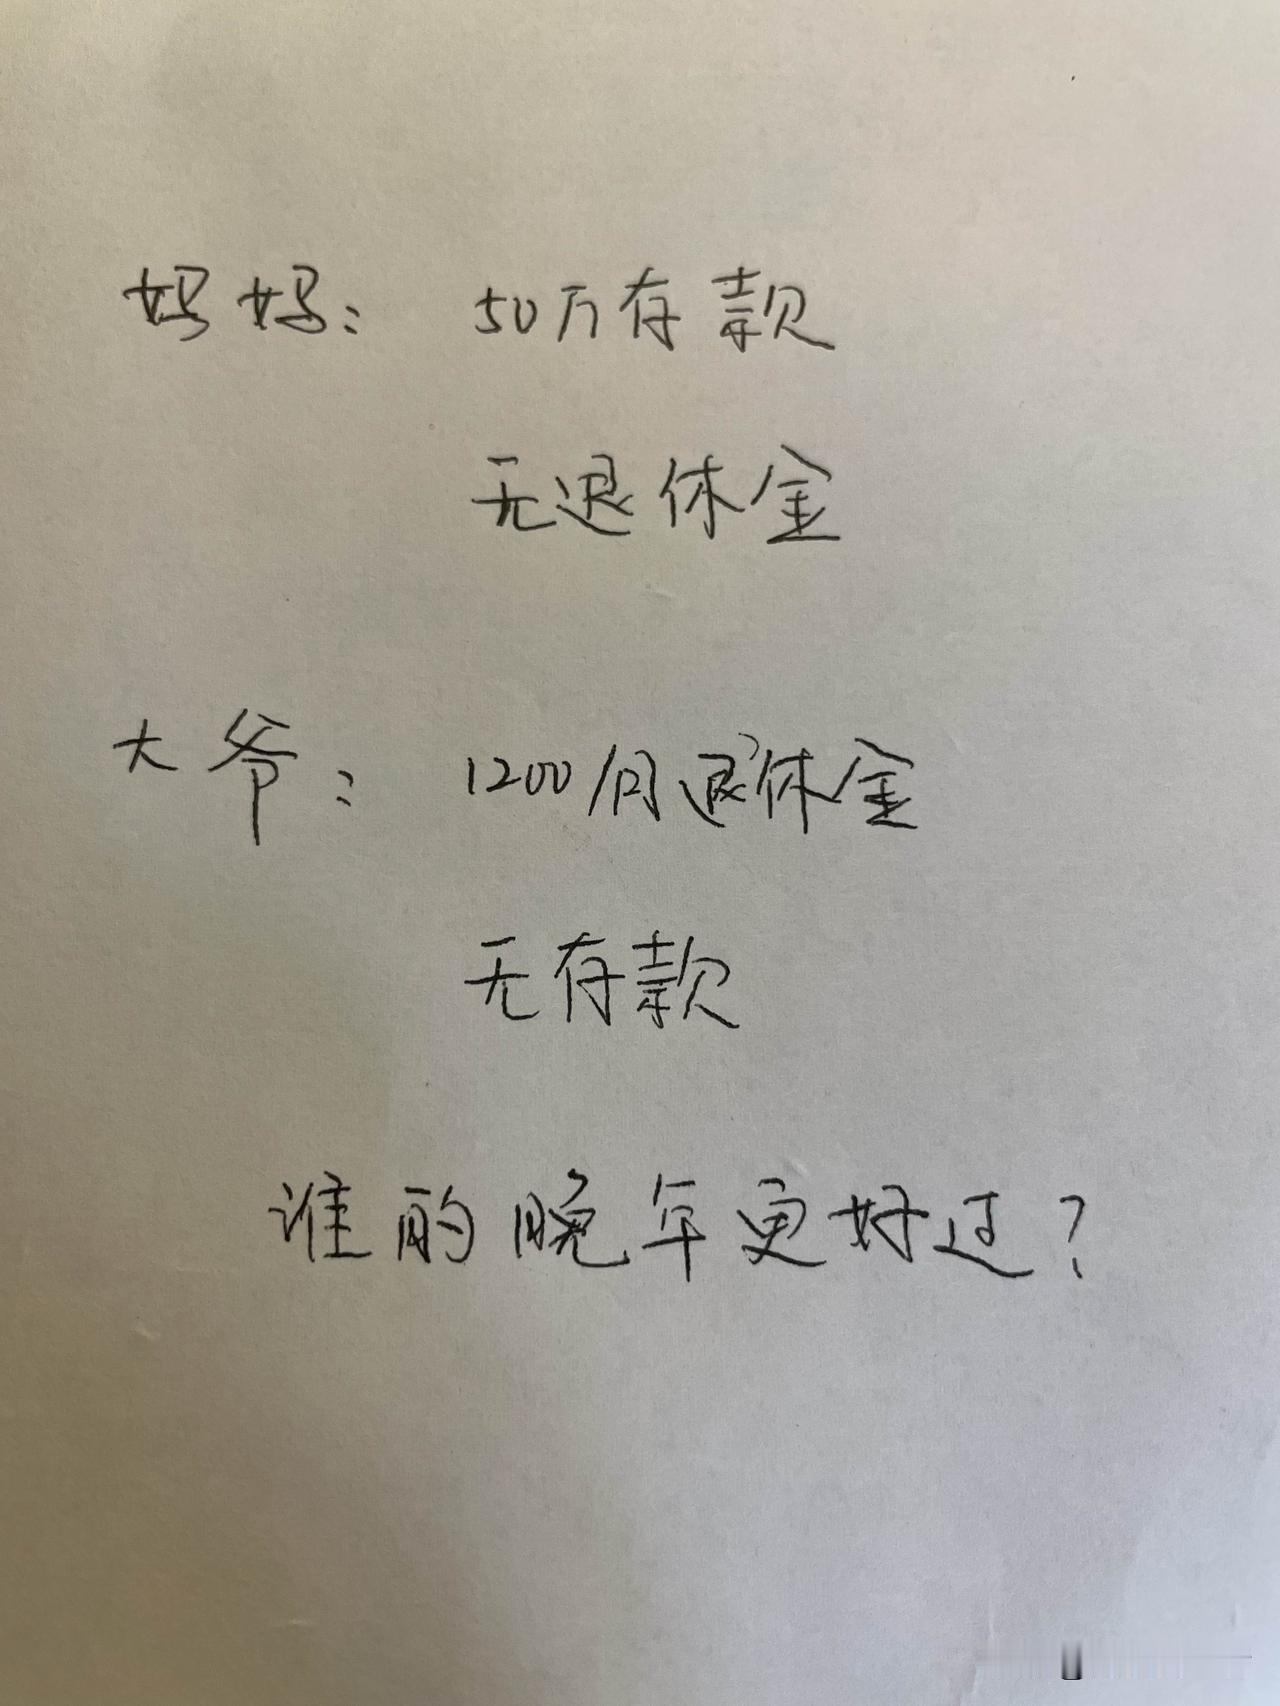 妈妈：50万存款
无退休金
大爷：1200/月退休金
无存款
谁的晚年更好过？